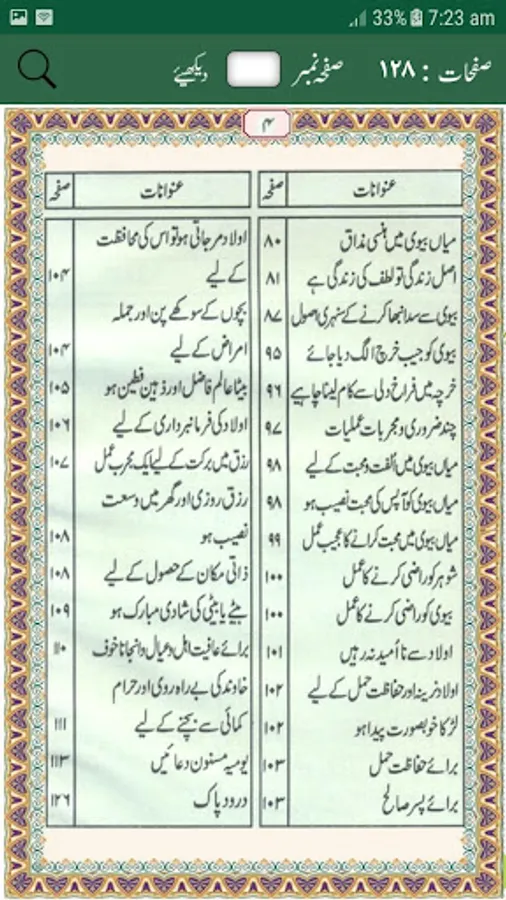 33% 7:23 am
صفحات : ۱۲۸ صفحہ نمبر دیکھیئے
۴
عنوانات صفحہ
میاں بیوی میں ہنسی مذاق ۸۰
اصل زندگی تو لطف کی زندگی ہے ۸۱
بیوی سے سدا نبھا کرنے کے سنہری اصول ۸۷
بیوی کو جیب خرچ الگ دیا جائے ۹۵
خرچہ میں فراخ دلی سے کام لینا چاہیے ۹۶
چند ضروری و مجربات عملیات ۹۷
میاں بیوی میں اُلفت و محبت کے لیے ۹۸
میاں بیوی کو آپس کی محبت نصیب ہو ۹۸
میاں بیوی میں محبت کرانے کا عجیب عمل ۹۹
شوہر کو راضی کرنے کا عمل ۱۰۰
بیوی کو راضی کرنے کا عمل ۱۰۰
اولاد سے نا اُمید نہ رہیں ۱۰۱
اولاد نرینہ اور حفاظت حمل کے لیے ۱۰۲
لڑکا خوبصورت پیدا ہو ۱۰۲
برائے حفاظت حمل ۱۰۳
برائے پسر صالح ۱۰۳
عنوانات صفحہ
اولاد مر جاتی ہو تو اس کی محافظت
کے لیے ۱۰۴
بچوں کے سوکھے پن اور جملہ
امراض کے لیے ۱۰۴
بیٹا عالم فاضل اور ذہین فطین ہو ۱۰۵
اولاد کی فرمانبرداری کے لیے ۱۰۶
رزق میں برکت کے لیے ایک مجرب عمل ۱۰۷
رزق روزی اور گھر میں وسعت
نصیب ہو ۱۰۸
ذاتی مکان کے حصول کے لیے ۱۰۸
بیٹے یا بیٹی کی شادی مبارک ہو ۱۰۹
برائے عافیت اہل و عیال و انجانا خوف ۱۱۰
خاوند کی بے راہ روی اور حرام
کمائی سے بچنے کے لیے ۱۱۱
یومیہ مسنون دعائیں ۱۱۳
درود پاک ۱۲۶